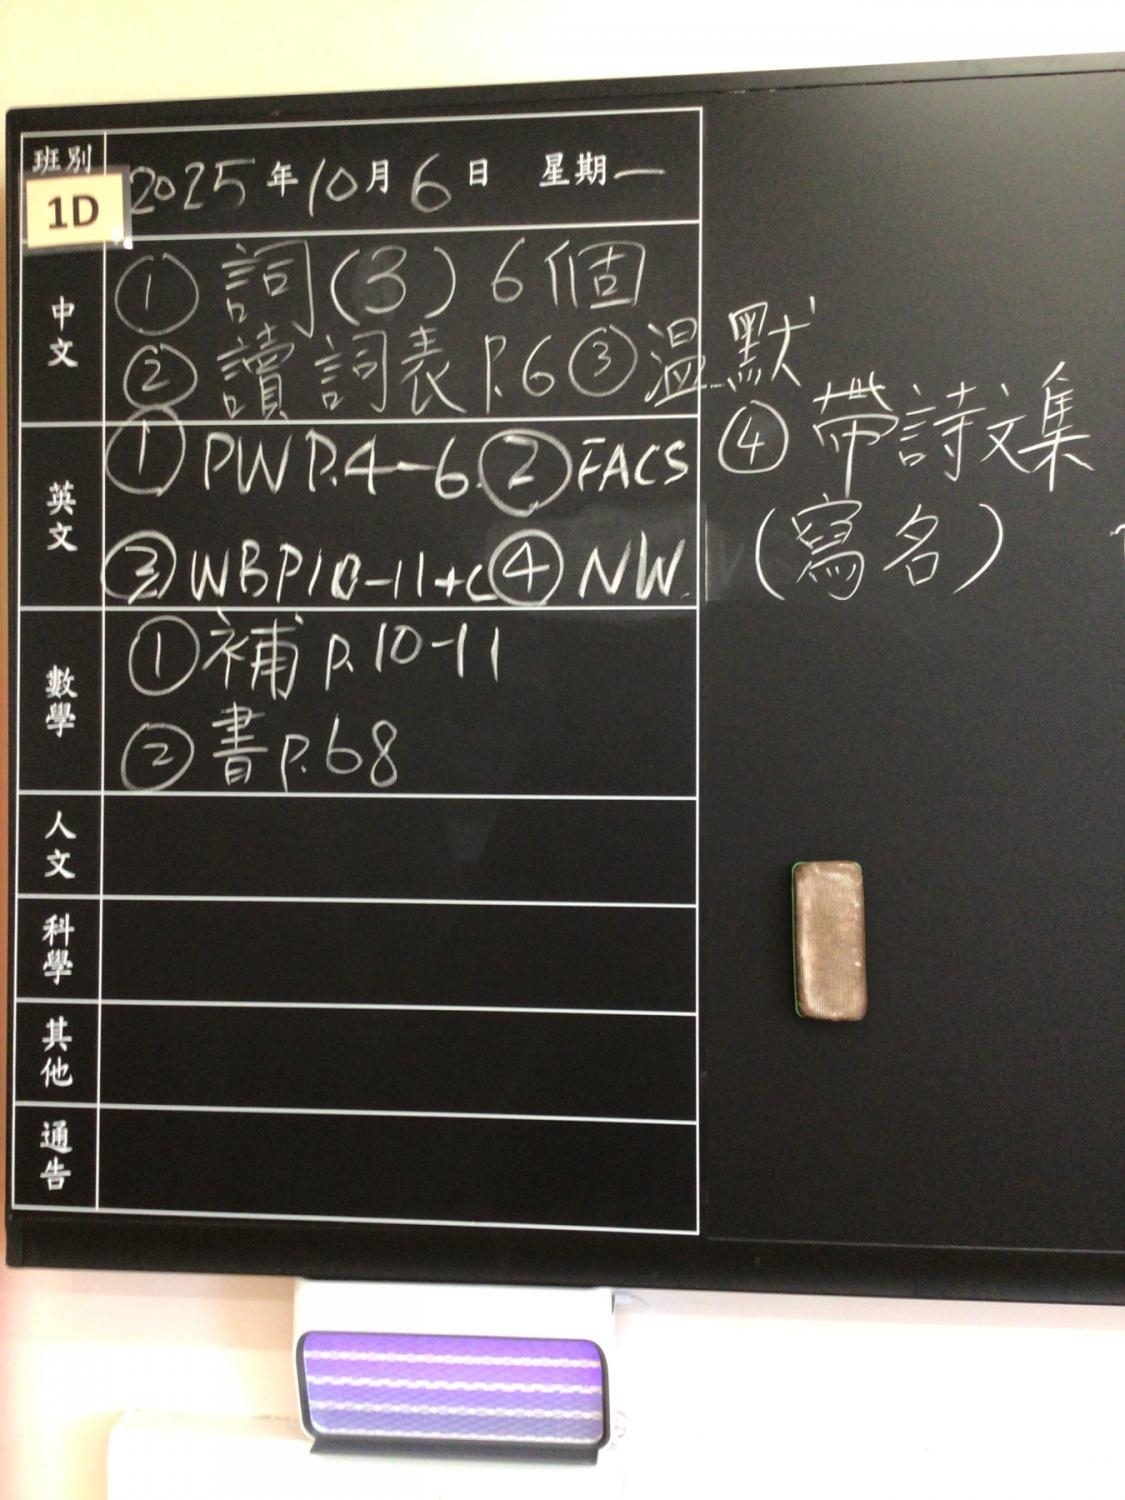 班別 2025年10月6日 星期一
1D
中文 ① 詞(3) 6個
② 讀詞表 P.6 ③ 溫默
④ 帶詩文集
(寫名)
英文 ① PW P.4-6. ② FACS
③ WB P10-11+C ④ NW
數學 ① 補 p.10-11
② 書 p.68
人文
科學
其他
通告